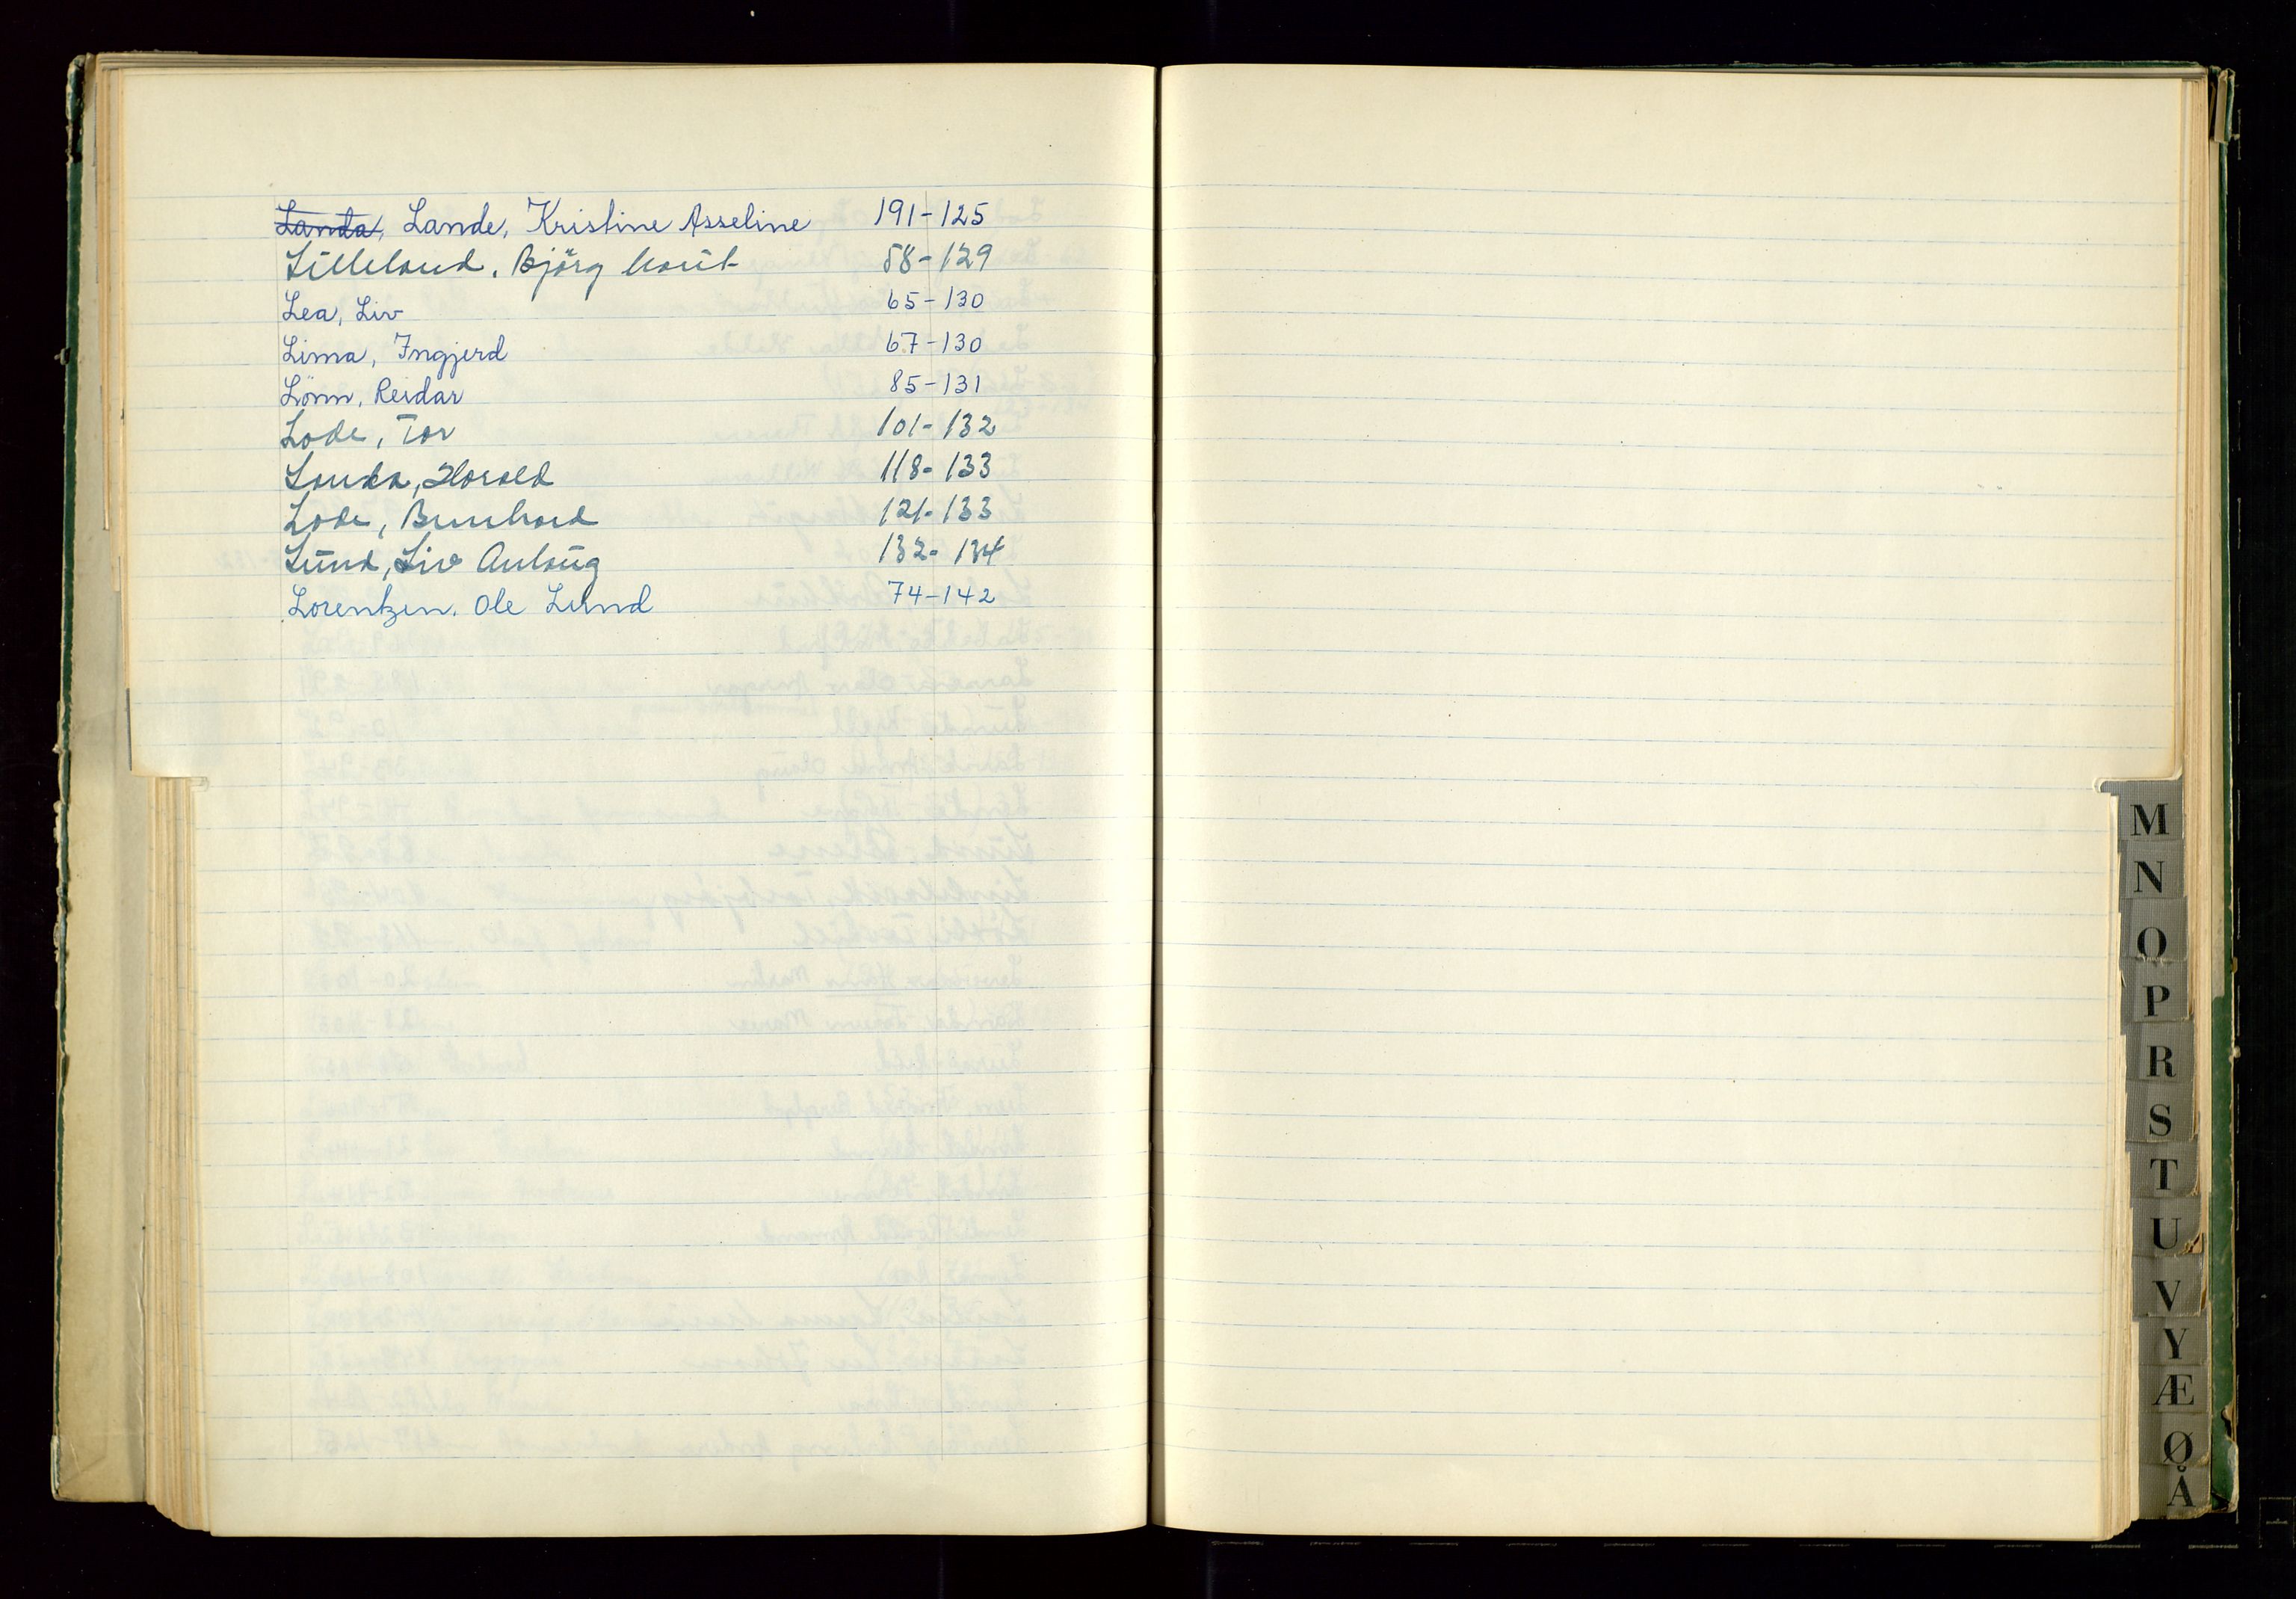 Landa, Lande, Kristine Asseline 191-125
Lilleland, Björg Marit 58-129
Lea, Liv 65-130
Lima, Ingjerd 67-130
Lönn, Reidar 85-131
Lode, Tor 101-132
Landa, Harald 118-133
Lode, Bernhard 121-133
Lund, Liv Aulaug 132-134
Lorentzen. Ole Lund 74-142
M
N
O
P
R
S
T
U
V
Y
Æ
Ø
Å